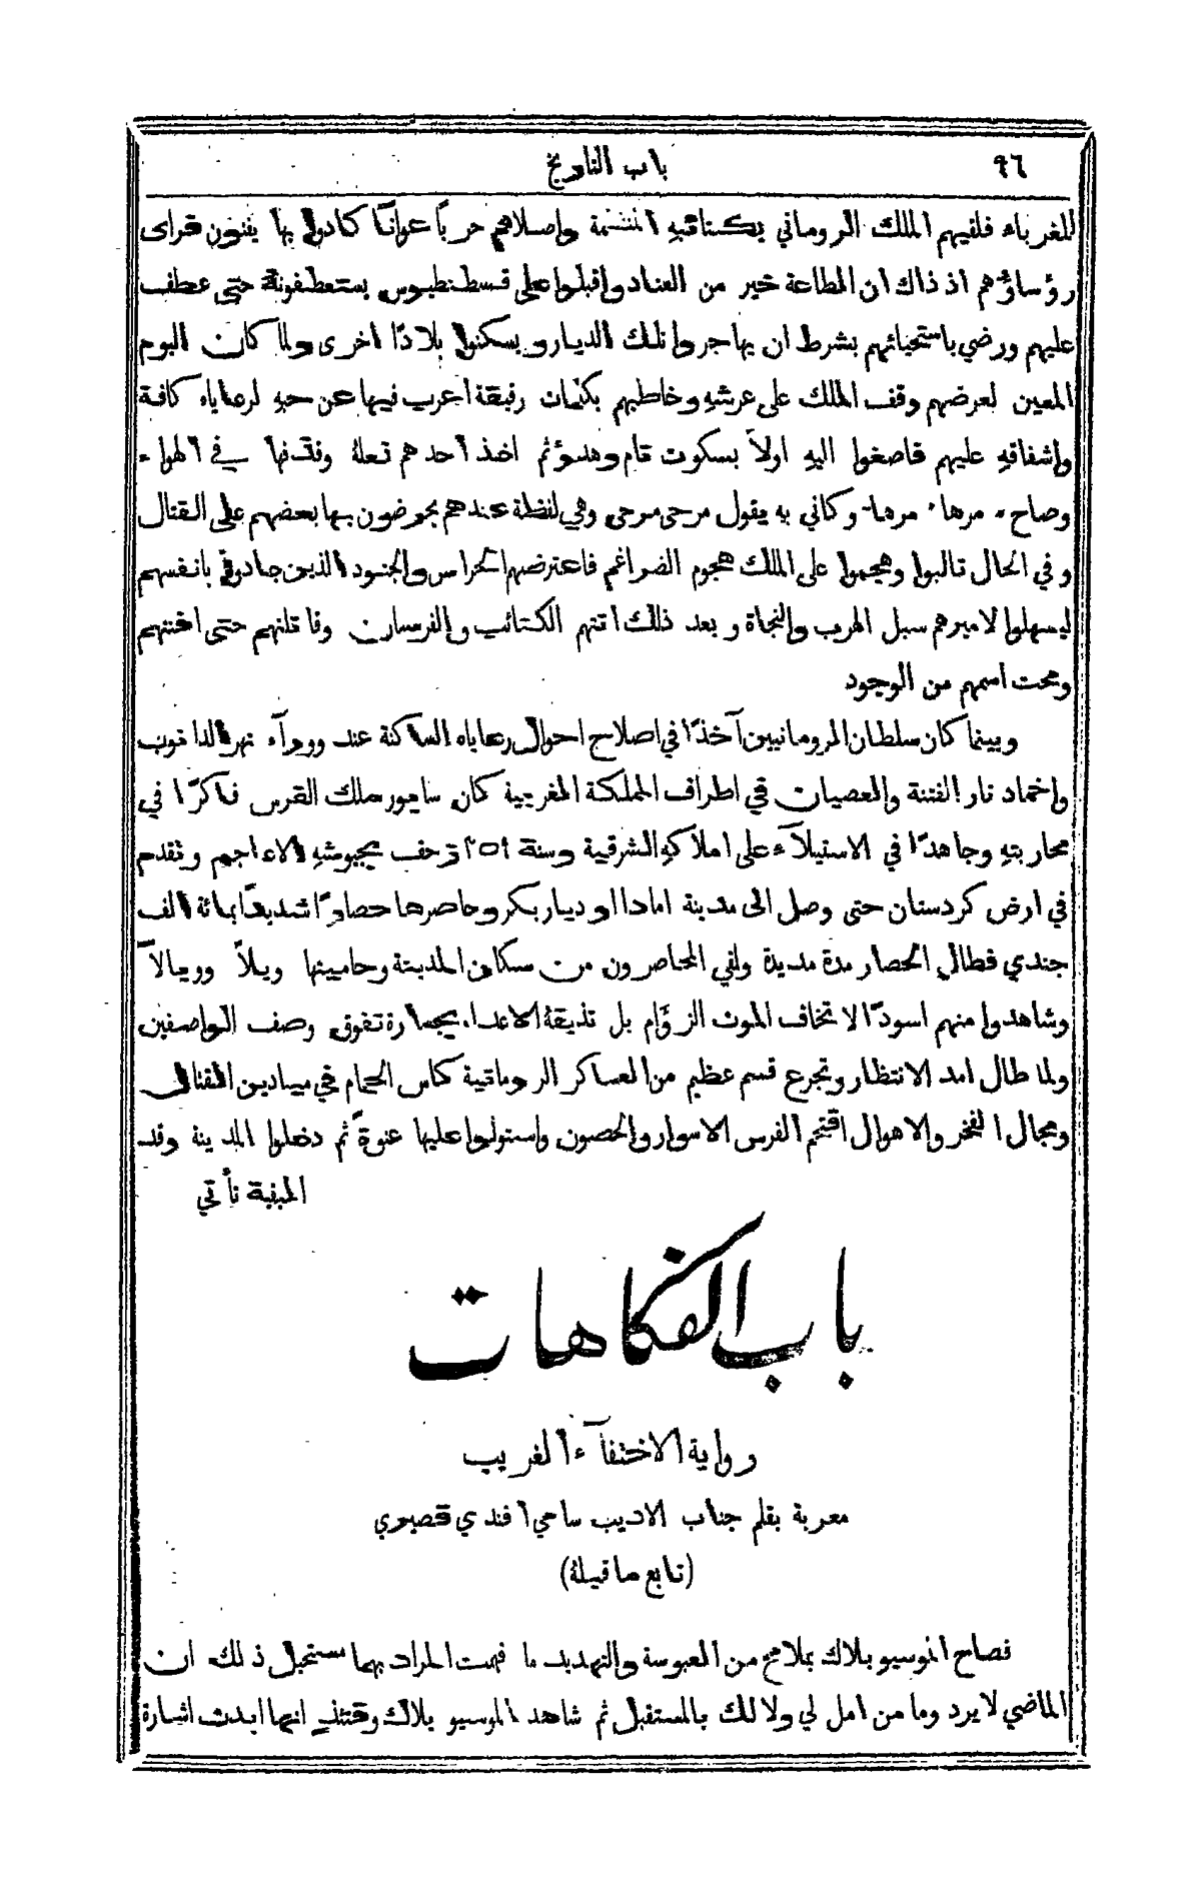 ٩٦ باب التاريخ
للغرباء فلقيهم الملك الروماني بكتائبه المنتظمة واصلاهم حربًا عوانًا كادوا بها يفنون فراى
رؤساؤهم اذ ذاك ان الطاعة خير من العناد واقبلوا على قسطنطيوس يستعطفونهُ حتى عطف
عليهم ورضي باستحيائهم بشرط ان يهاجروا تلك الديار ويسكنوا بلادًا اخرى ولما كان اليوم
المعين لعرضهم وقف الملك على عرشهِ وخاطبهم بكلمات رقيقة اعرب فيها عن حبهِ لرعاياه كافة
واشفاقهِ عليهم فاصغوا اليهِ اولاً بسكوت تام وهدوٍّ ثم اخذ احدهم نعلهُ وقذفها في الهواء
وصاح مرها مرها وكاني به يقول مرحى مرحى وهي لفظة عندهم يحرضون بها بعضهم على القتال
وفي الحال تالبوا وهجموا على الملك هجوم الضراغم فاعترضهم الحراس والجنود الذين جادوا بانفسهم
ليسهلوا لاميرهم سبل الهرب والنجاة وبعد ذلك اتتهم الكتائب والفرسان وقاتلتهم حتى افنتهم
ومحت اسمهم من الوجود
وبينما كان سلطان الرومانيين آخذًا في اصلاح احوال رعاياه الساكنة عند وورآء نهر الدانوب
واخماد نار الفتنة والعصيان في اطراف المملكة المغربية كان سابور ملك الفرس فاكرًا في
محاربتهِ وجاهدًا في الاستيلآء على املاكهِ الشرقية وسنة ٣٥٩ زحف بجيوشهِ الاعاجم وتقدم
في ارض كردستان حتى وصل الى مدينة امادا او ديار بكر وحاصرها حصارًا شديدًا بمائة الف
جندي فطال الحصار مدة مديدة ولقي المحاصرون من سكان المدينة وحاميتها ويلاً ووبالاً
وشاهدوا منهم اسودًا لا تخاف الموت الزؤام بل تذيقهُ الاعداء بجسارة تفوق وصف الواصفين
ولما طال امد الانتظار وتجرع قسم عظيم من العساكر الرومانية كاس الحمام في ميادين القتال
ومجال الفخر والاهوال اقتحم الفرس الاسوار والحصون واستولوا عليها عنوةً ثم دخلوا المدينة وقد
البقية تأتي
باب الفكاهات
رواية الاختفآء الغريب
معربة بقلم جناب الاديب سامي افندي قصيري
(تابع ما قبلهُ)
فصاح الموسيو بلاك بملامح من العبوسة والتهديد ما فهمت المراد بهما مستحيل ذلك ان
الماضي لا يرد وما من امل لي ولا لك بالمستقبل ثم شاهد الموسيو بلاك وقتئذ انها ابدت اشارة